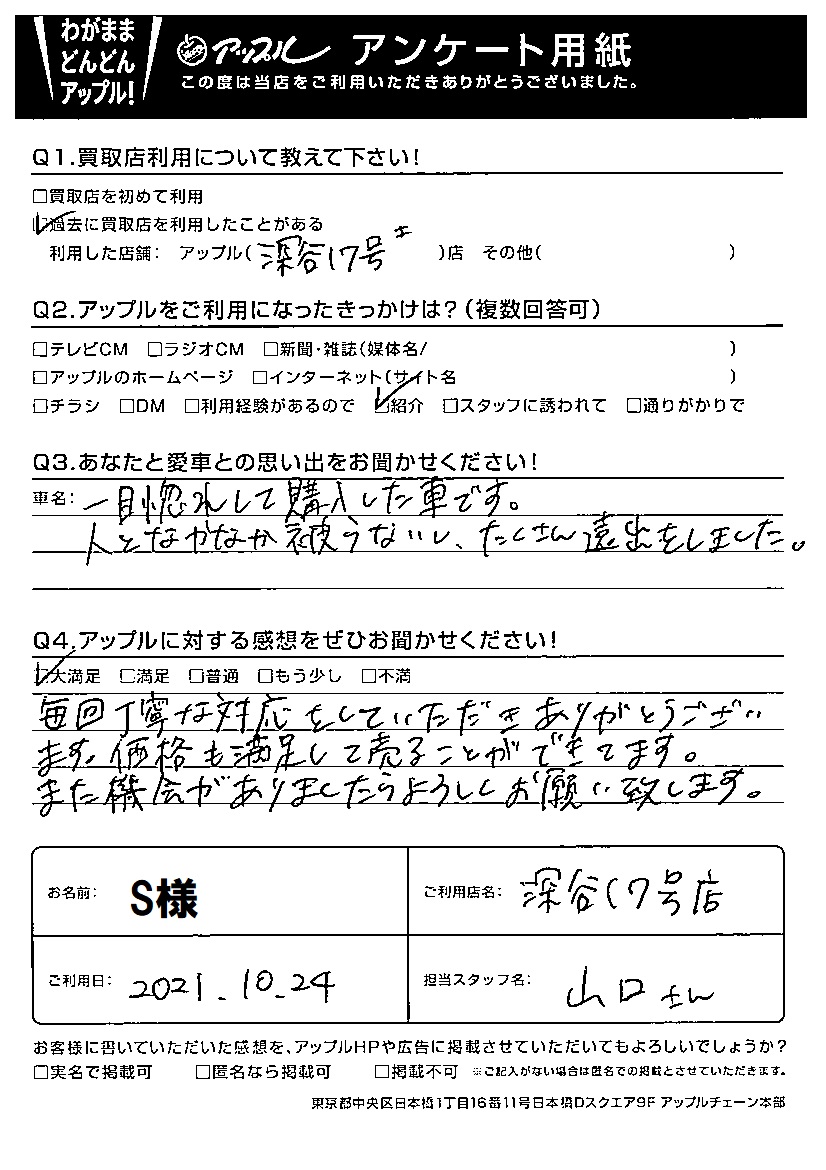 わがまま
どんどん
アップル!
アップル アンケート用紙
この度は当店をご利用いただきありがとうございました。
Q1.買取店利用について教えて下さい!
□買取店を初めて利用
☑過去に買取店を利用したことがある
利用した店舗: アップル(深谷17号 )店 その他( )
Q2.アップルをご利用になったきっかけは?(複数回答可)
□テレビCM □ラジオCM □新聞・雑誌(媒体名/ )
□アップルのホームページ □インターネット(サイト名 )
□チラシ □DM □利用経験があるので ☑紹介 □スタッフに誘われて □通りがかりで
Q3.あなたと愛車との思い出をお聞かせください!
車名: 一目惚れして購入した車です。
人となかなか被らないし、たくさん遠出をしました。
Q4.アップルに対する感想をぜひお聞かせください!
☑大満足 □満足 □普通 □もう少し □不満
毎回丁寧な対応をしていただきありがとうござい
ます。価格も満足して売ることができてます。
また機会がありましたらよろしくお願い致します。
お名前: S様 ご利用店名: 深谷17号店
ご利用日: 2021.10.24 担当スタッフ名: 山口さん
お客様に書いていただいた感想を、アップルHPや広告に掲載させていただいてもよろしいでしょうか?
□実名で掲載可 □匿名なら掲載可 □掲載不可 ※ご記入がない場合は匿名での掲載とさせていただきます。
東京都中央区日本橋1丁目16番11号日本橋Dスクエア9F アップルチェーン本部